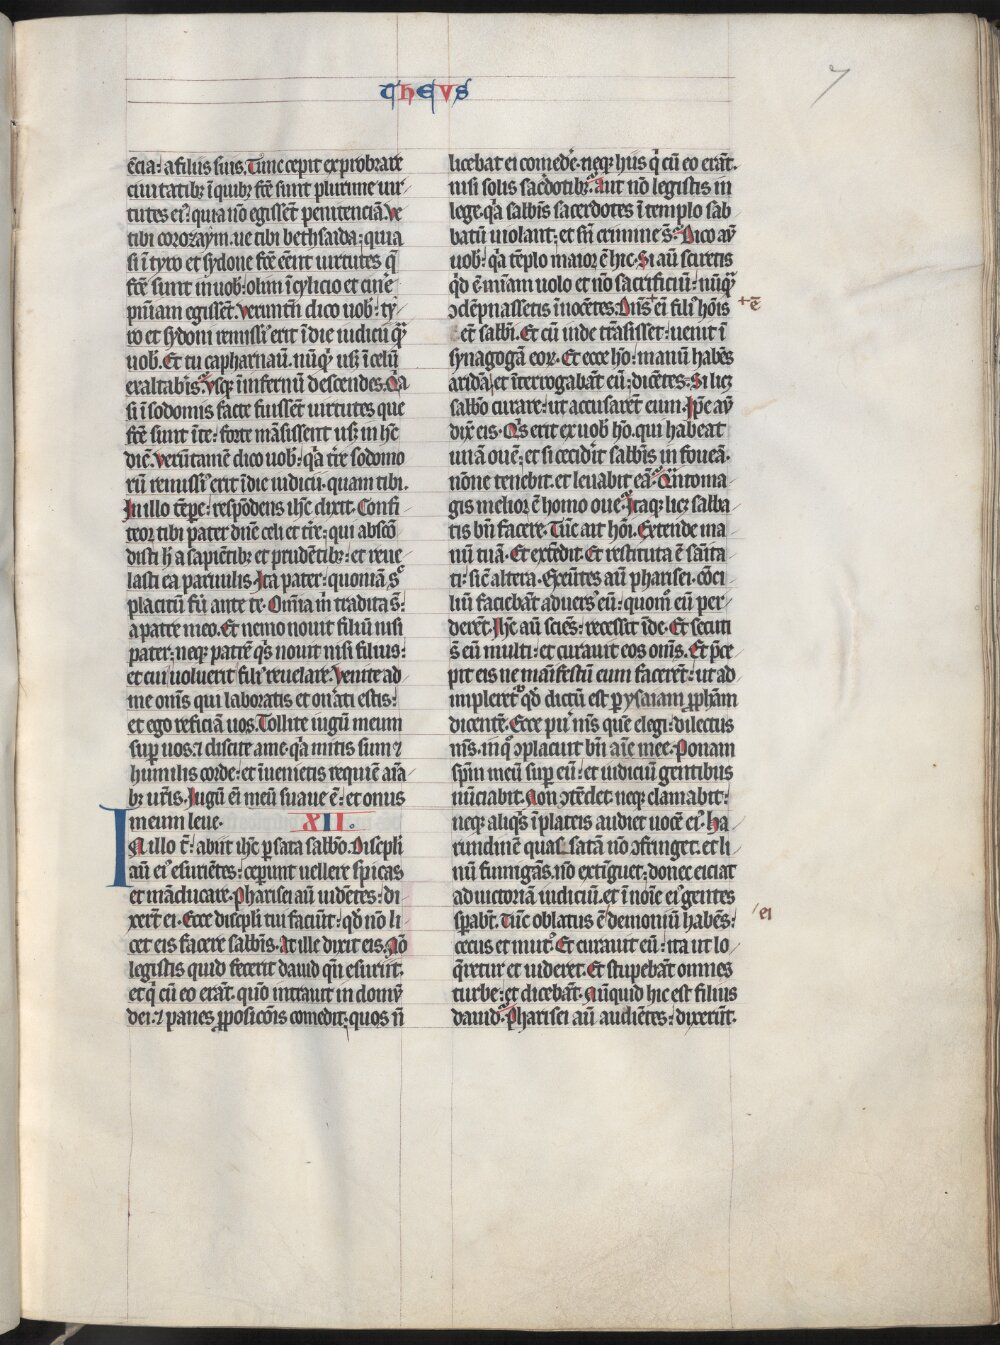 THEVS
7
ēcia: a filiis suis. Tunc cepit exprobrare
ciuitatibꝫ ī quibꝫ fc̄e sunt plurime uir
tutes eiꝰ: quia nō egissēt penitenciā. Ve
tibi corozaym. ue tibi bethsaida: quia
si ī tyro et sydone fc̄e eēnt uirtutes q̄
fc̄e sunt in uob: olim ī cylicio et cin̄e
pn̄iam egissēt. Veruntn̄ dico uob: ty
ro et sydoni remissiꝰ erit ī die iudicii qᷓ
uob. Et tu capharnaū. nūqͥ usꝫ ī celū
exaltabis. Vsqꝫ ī infernū descendes. Qͥa
si ī sodomis facte fuissēt uirtutes que
fc̄e sunt ī te: forte māsissent usꝫ in hc̄
diē. Verūtamē dico uob: qͥa tr̄e sodomo
rū remissiꝰ erit ī die iudicii. quam tibi.
In illo tēpe: respōdens ihc̄ dixit. Confi
teor tibi pater dn̄e celi et tr̄e: qui abscō
disti h̄ a sapiētibꝫ et prudētibꝫ: et reue
lasti ea paruulis. Ita pater: quoniā sͨ
placitū fū ante te. Om̄ia m̄ tradita s̄:
a patre meo. Et nemo nouit filiū nisi
pater: neqꝫ patrē qͥs nouit nisi filius:
et cui uoluerit filiꝰ reuelare. Venite ad
me om̄s qui laboratis et on̄ati estis:
et ego reficiā uos. Tollite iugū meum
suꝑ uos: ⁊ discite a me qͥa mitis sum ⁊
humilis corde: et īuenietis requiē aīa
bꝫ ur̄is. Iugū eī meū suaue ē: et onus
meum leue. XII.
IN illo t̄: abiit ihc̄ ꝑ sata sabbō. Discipli
aū eiꝰ esuriētes: ceperunt uellere spicas
et māducare. Pharisei aū uidētes: di
xert̄ ei. Ecce discipli tui faciūt: qd̄ nō li
cet eis facere sabbis. At ille dixit eis. Nō
legistis quid fecerit dauid qn̄ esuriit.
et q̄ cū eo erāt. quō intrauit in domū
dei: ⁊ panes ꝓposicōis comedit: quos n̄
licebat ei comedē. neqꝫ hiis q̄ cū eo erāt.
nisi solis sac̄dotibꝫ. Aut nō legistis in
lege. qͥa sabbis sacerdotes ī templo sab
batū uiolant: et sn̄ crimine s̄. Dico aū
uob: qͥa tēplo maior ē hic. Si aū sciretis
qͥd ē mīam uolo et nō sacrificiū: nūqᷓ
ꝯdēpnassetis īnocētes. Dn̄s eī filiꝰ hōis
+ ē
et̄ sabbi. Et cū inde trāsisset: uenit ī
synagogā eoꝝ. Et ecce ho: manū habēs
aridā. et īterrogabāt eū: dicētes. Si licꝫ
sabbō curare: ut accusarēt eum. Ip̄e aū
dix̄ eis. Qͥs erit ex uob hō. qui habeat
unā ouē: et si ceciderit sabbis in foueā.
nōne tenebit. et leuabit eā. Qn̄toma
gis melior ē homo oue. Itaqꝫ licꝫ sabba
tis bn̄ facere. Tūc ait hōi. Extende ma
nū tuā. Et extēdit. Et restituta ē saīta
ti: sic̄ altera. Exeūtes aū pharisei. cōci
liū faciebāt aduersꝰ eū: quom̄ eū per
derēt. Ihc̄ aū sciēs: recessit īde. Et secuti
s̄ eū multi: et curauit eos om̄s. Et p̄ce
pit eis ne maīfestū eum facerēt: ut ad
impleretꝰ qd̄ dictū est ꝑ ysaiam ꝓphām
dicentē. Ecce puꝰ m̄s quē elegi: dilectus
m̄s. in qͦ ꝯplacuit bn̄ aīe mee. Ponam
spm̄ meū suꝑ eū: et iudiciū gentibus
nūciabit. Non ꝯtēdet. neqꝫ clamabit:
neqꝫ aliqͥs ī plateis audiet uocē eiꝰ. ha
rundinē quassatā nō ꝯfringet. et li
nū fumigās. nō extīguet: donec eiciat
ad uictoriā iudiciū. et ī noīe eiꝰ gentes
spabt̄. Tūc oblatus ē demoniū habēs:
ei
cecus et mutꝰ. Et curauit eū: ita ut lo
q̄retur et uideret. Et stupebāt omnes
turbe: et dicebāt. Nūquid hic est filius
dauid. Pharisei aū audiētes: dixerūt.